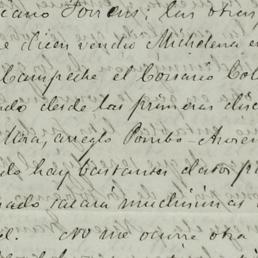 ciano Torrens; las otras
e dicen vendió Michelena e
Campeche el Corsario Col
do desde las primeras dis
arreglo Pombo-
do hay bastantes datos p
ado sacará muchísimas
No me ocurre otra